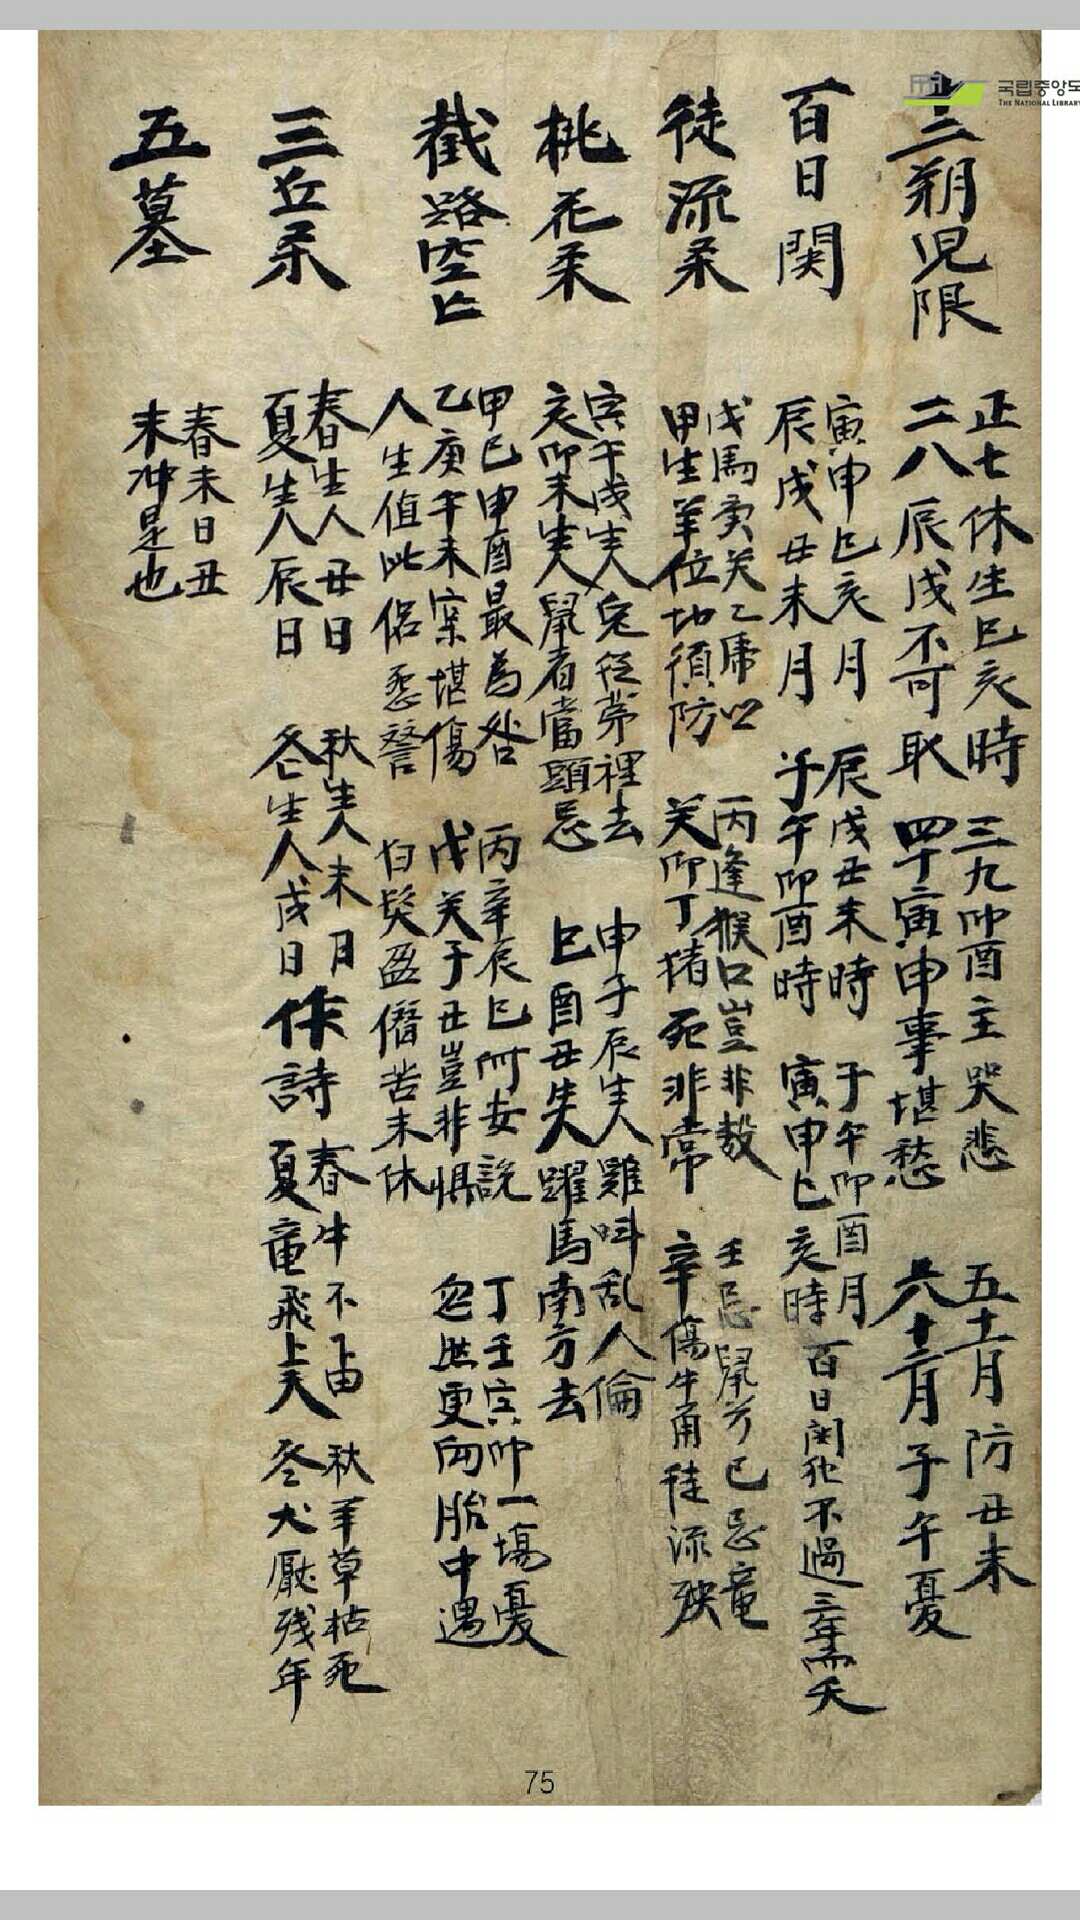 국립중앙도
THE NATIONAL LIBRARY
十二朔児限
正七休生巳亥時 三九卯酉主哭悲 五十一月防丑未
二八辰戌不可取 四十寅申事堪愁 六十二月子午憂
百日関
寅申巳亥月 辰戌丑未時 子午卯酉月
辰戌丑未月 子午卯酉時 寅申巳亥時 百日関犯不過三年而夭
徒流殺
戊馬庚 乙虎 丙逢猴口豈非 壬忌鼠 巳忌竜
甲生羊位切須防 卯丁猪死非常 辛傷牛角徒流殃
桃花殺
寅午戌生人兔従茅裡去 申子辰生人雞叫乱人倫
亥卯未生人鼠者當頭忌 巳酉丑生人躍馬南方去
截路空亡
甲己申酉最為咎 丙辛辰巳 説 丁壬寅卯一場憂
乙庚午未案堪傷 戊 子丑豈非惧 忽然更向胎中遇
人生值此 白髮盈 苦未休
三丘殺
春生人丑日 秋生人未月 春牛不 秋羊草枯死
夏生人辰日 冬生人戌日 作詩 夏竜飛上天 冬犬厭残年
五墓
春未日丑
未冲是也
75